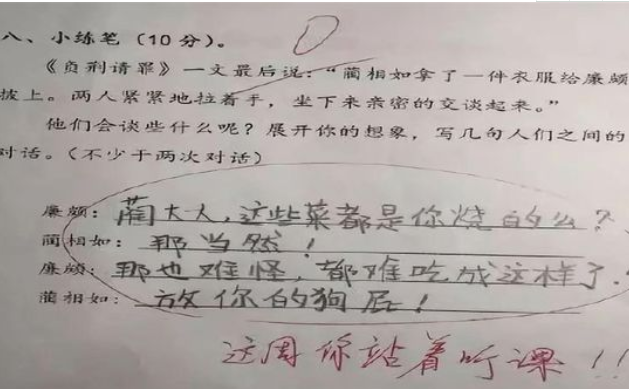 八、小练笔（10分）。
《负荆请罪》一文最后说：“蔺相如拿了一件衣服给廉颇
披上。两人紧紧地拉着手，坐下来亲密的交谈起来。”
他们会谈些什么呢？展开你的想象，写几句人们之间的
对话。（不少于两次对话）
0
廉颇：蔺大人，这些菜都是你烧的么？
蔺相如：那当然！
廉颇：那也难怪，都难吃成这样了.
蔺相如：放你的狗屁！
这周你站着听课！！